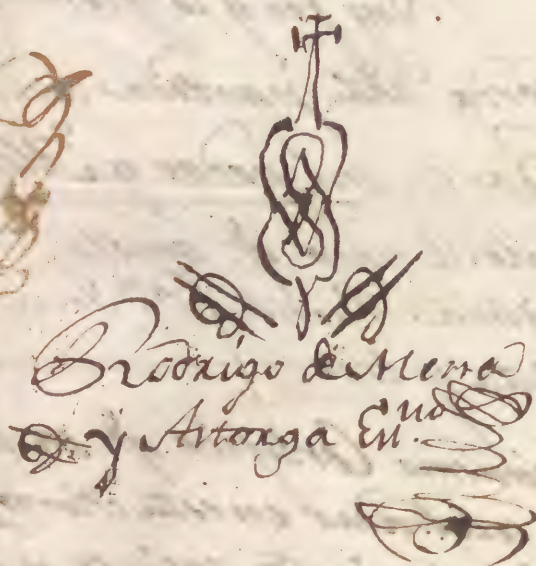 Rodrigo de Mena
y Astorga Esno.